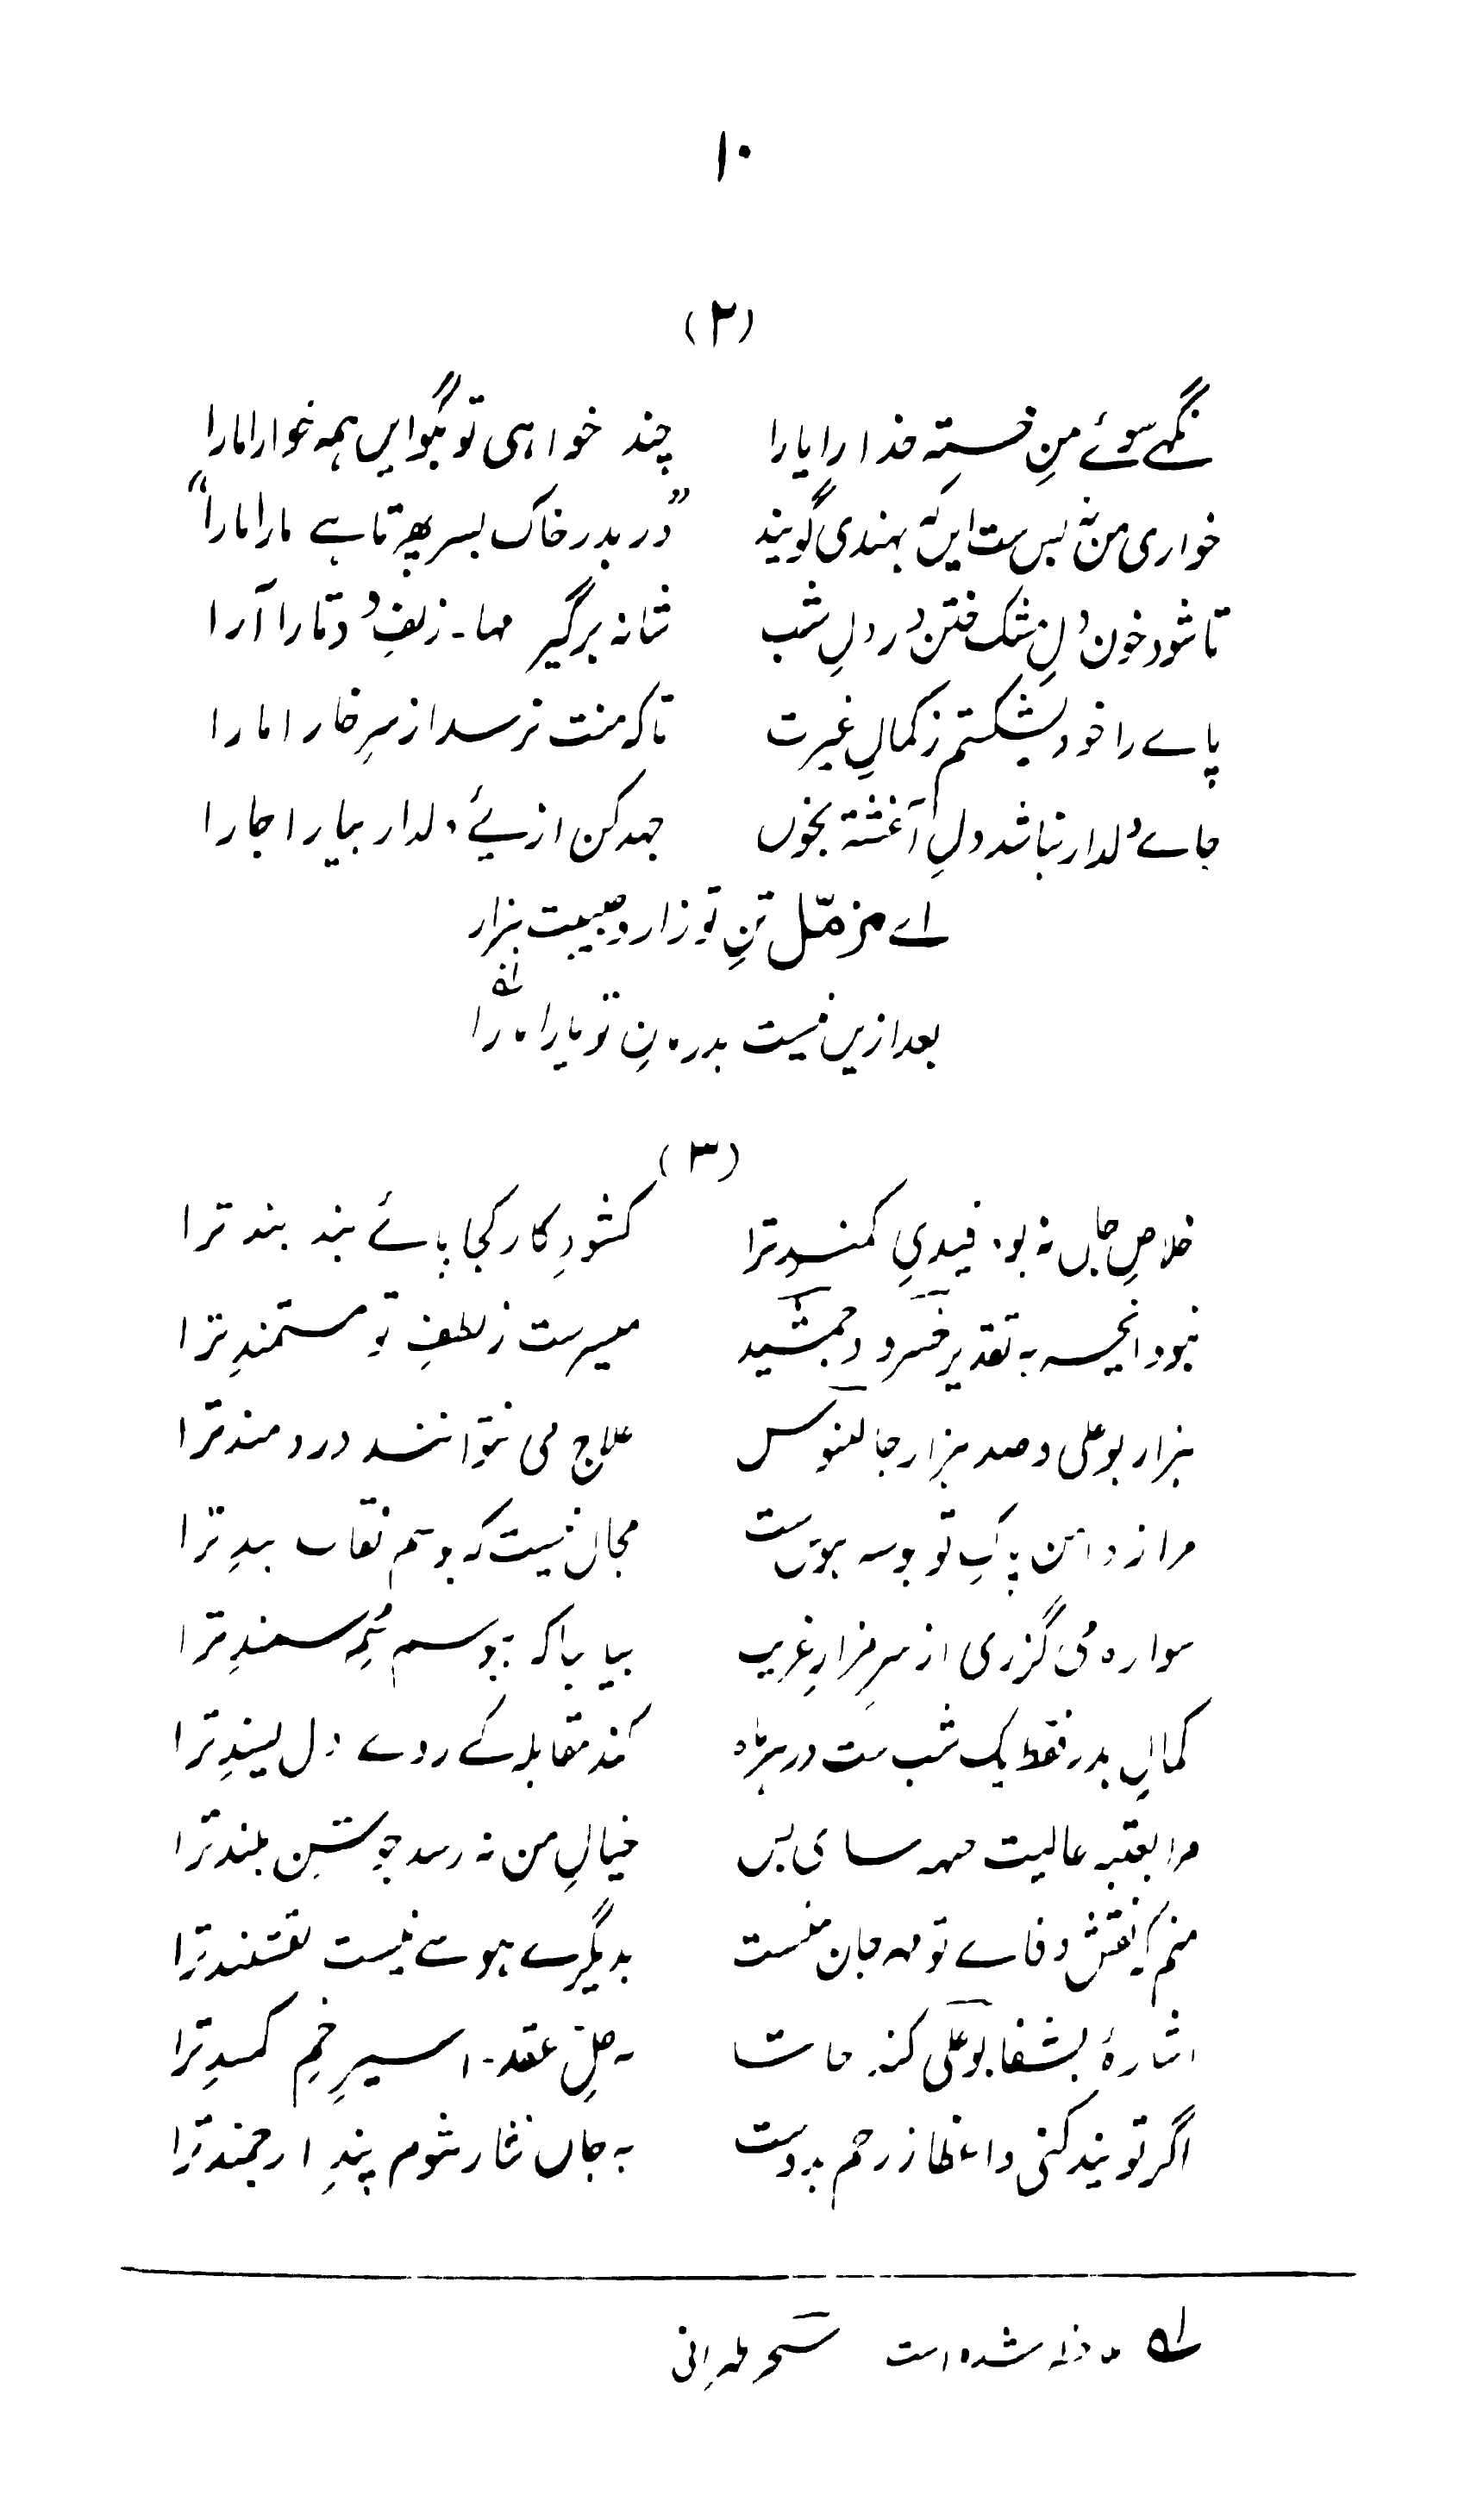 ۱۰
(۲)
نگہے سوئے منِ خستہ خدا را یارا چند خواہی تو بگو ایں ہمہ خوارا مارا
خواری من بس ست ایں کہ بہندی گویند "در بدر خاک بسر پھرتا ہے مارا مارا"
تا شود خون دلِ مشک ختن در دلِ شب شانہ برگیر مہا۔ زلفِ دوتا را آرا
پاے را خود بشکستم ز کمالِ غیرت تاکہ منت نرسد از سرِ خارا مارا
جاے دلدار نباشد دلِ آغشتہ بخوں جہد کن از پئے دلدار بیارا جارا
اے مزمّل تنِ تو زار و حبیبت بیزار
بعد ازیں نیست بدرمانِ تو یارا مارا
(۳)
خلاصِ جاں نہ بود قیدیِ کمندِ ترا کشودِ کار کجا پائے بند بند ترا
نبود انچہ بہ تقدیر خسرو و جمشید میسرست ز لطفِ تو مستمندِ ترا
ہزار بو علی و صد ہزار جالنوس علاج می نتوانند دردمند ترا
مرا ز دامن پاکِ تو بوسہ بہوس ست مجال نیست کہ بوسم نقاب بیدِ ترا
سوارہ می گزری از سرِ مزارِ غریب بیا بیا کہ ببوسم سُمِ سمندِ ترا
کمالِ بدر فقط یک شب ست در ہر ماہ کند مقابلہ کے روے دل پسندِ ترا
مرا بعتبہ عالیت سہہ سای بس خیالِ من نہ رسد چو کشتن بلند ترا
منم کہ نقش وفاے تو مہہ جان منست بدیگرے ہوسے نیست نقشبند ترا
اشارۂ بشفا بو علی کند حاشا بہ حلِ عقدہ اسیرِ خمِ کمندِ ترا
اگر تو پند کنی واعظا ز رحم بدوست بہ جاں نثار شوم پندِ ارجمند ترا
لہ شدہ است طہرانی